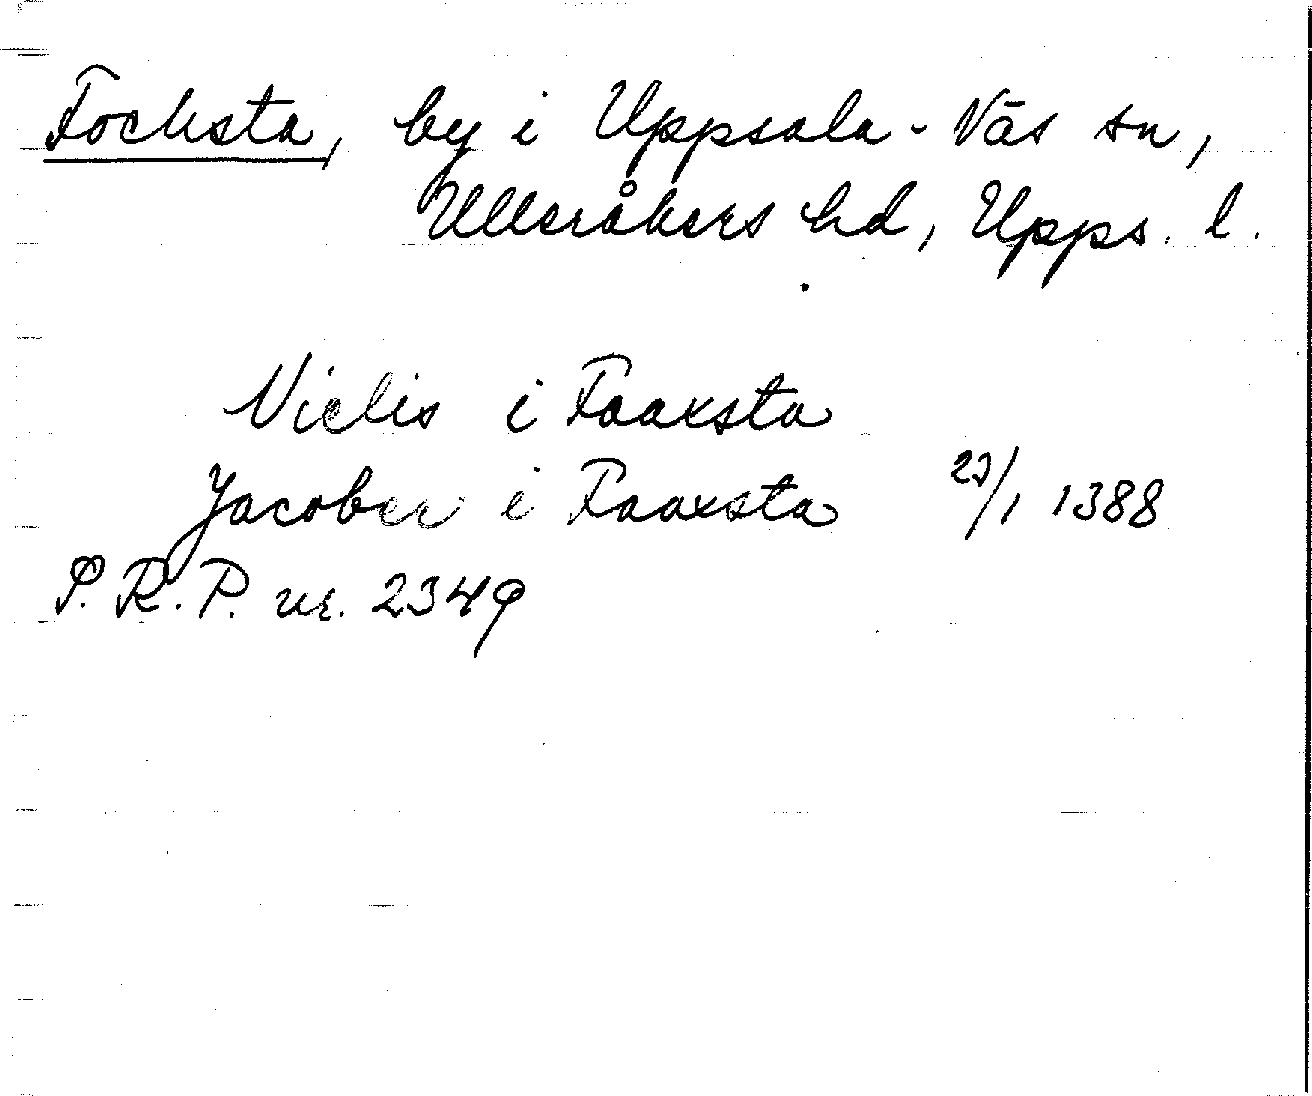 Focksta, by i Uppsala-Näs sn,
Ulleråkers hd, Upps. l.
Niclis i Faaxsta
Jacober i Faaxsta 23/1 1388
S.R.P. nr. 2349